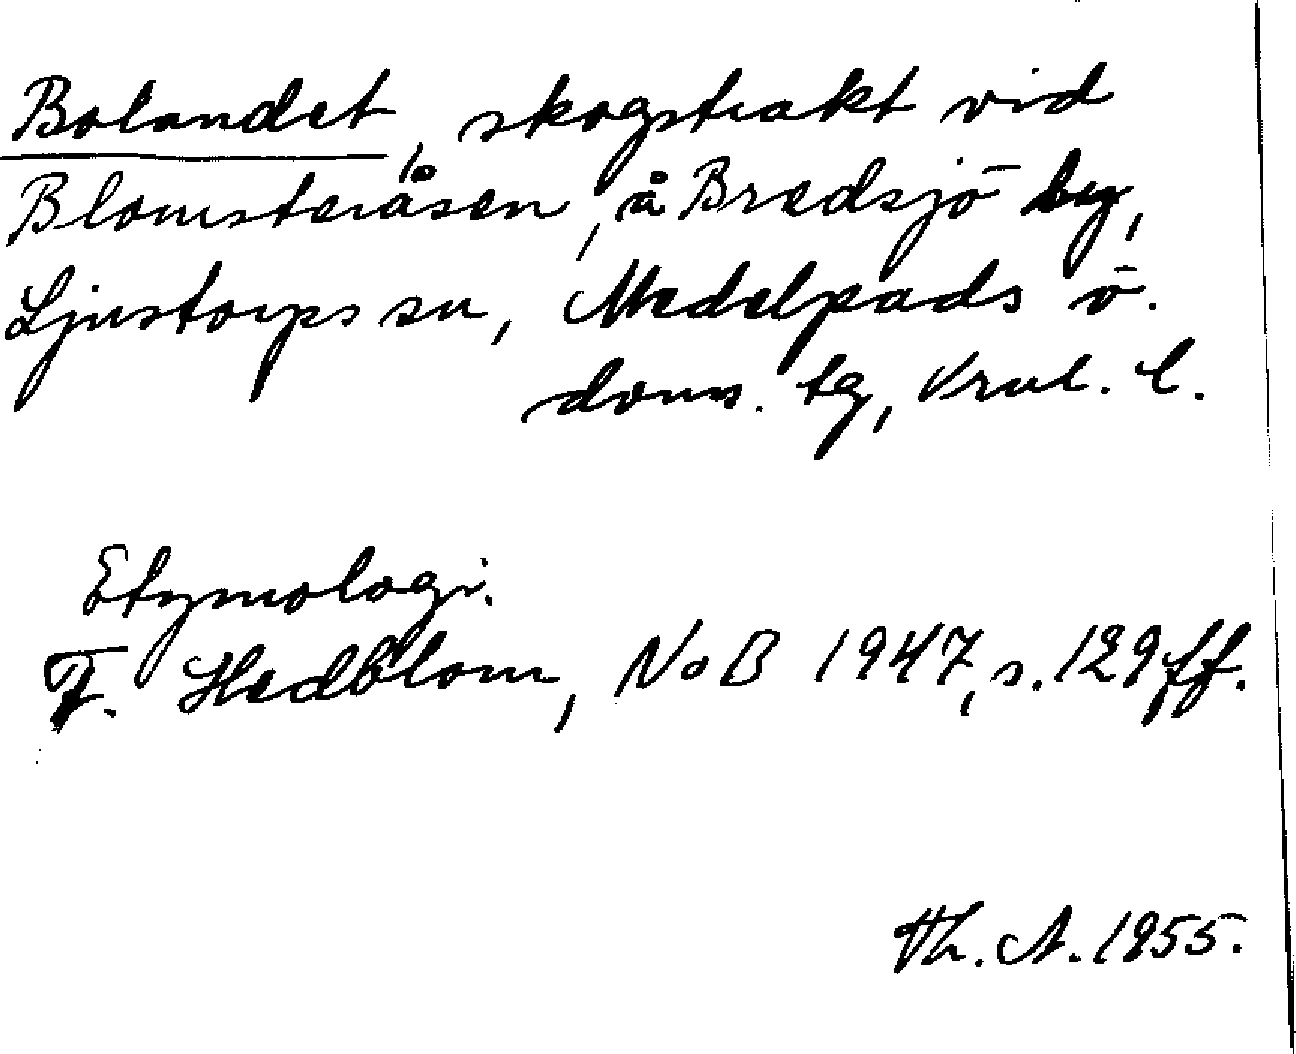 Bolandet, skogstrakt vid
Blomsteråsen, å Bredsjö by,
Ljustorps sn, Medelpads ö.
doms. tg, Vnl. l.
Etymologi.
F. Hedblom, NoB 1947, s. 129 ff.
Th. A. 1955.